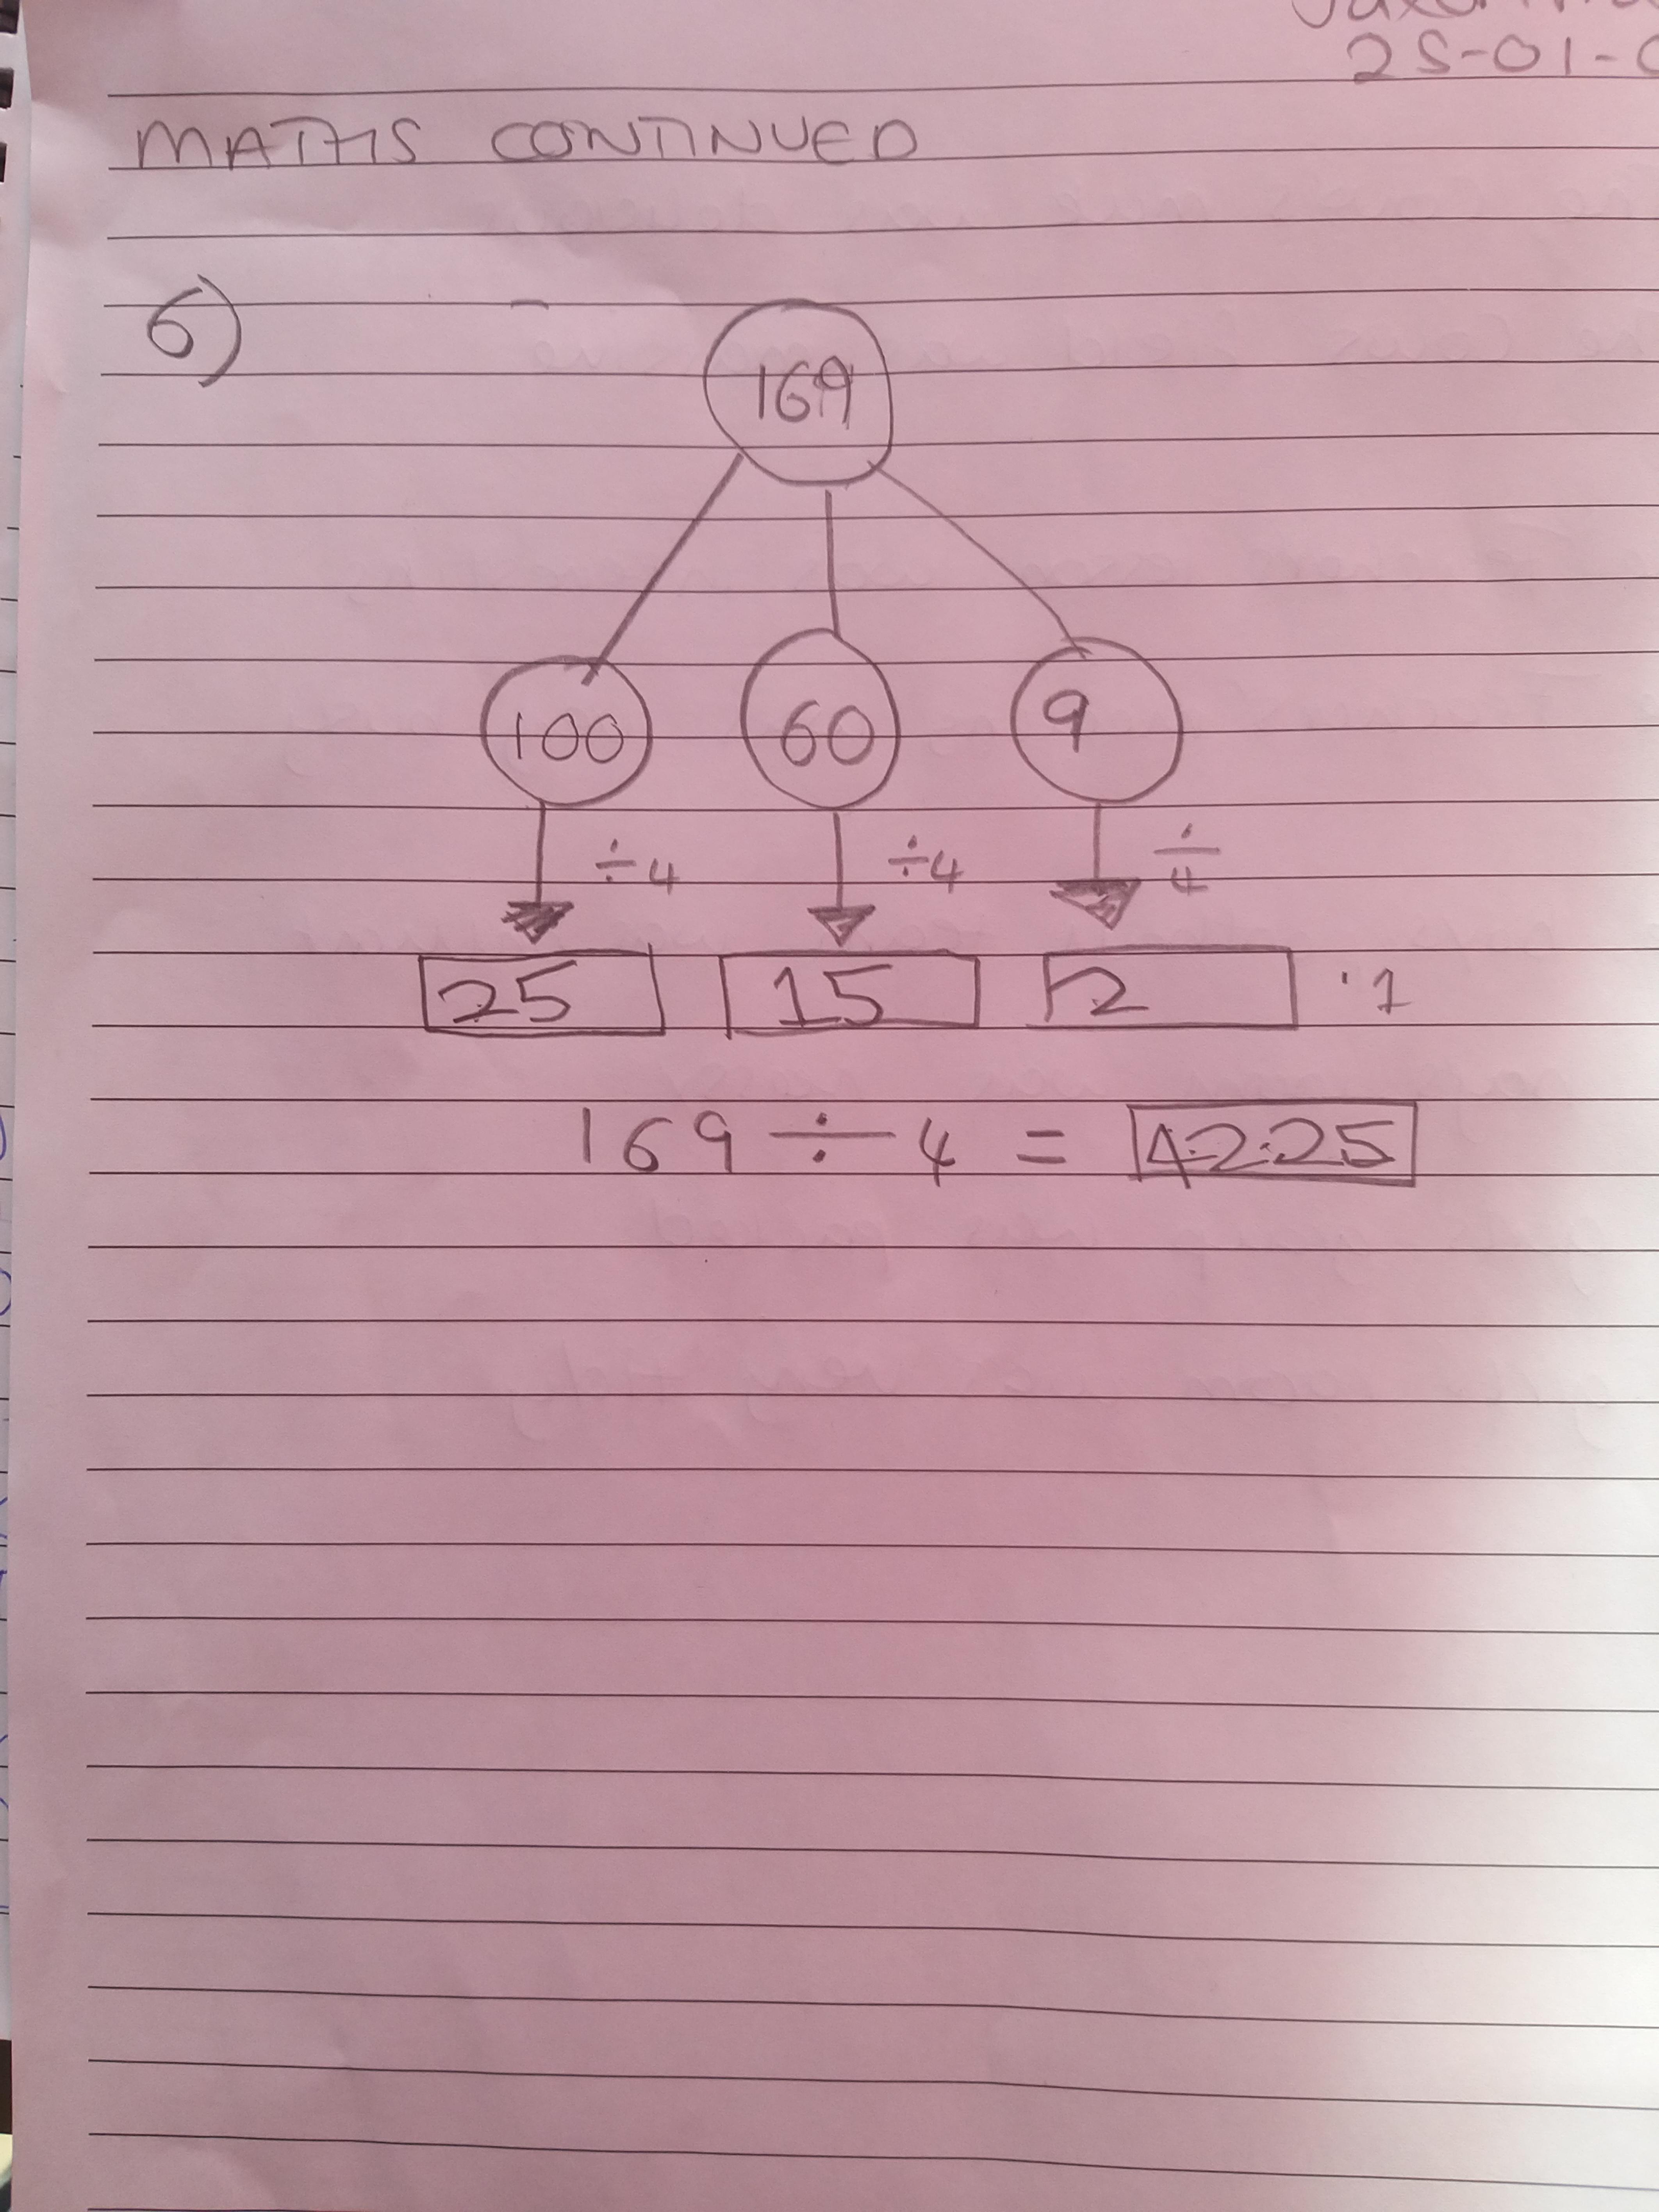 25-01-
MATHS CONTINUED
6)
169
100 60 9
÷4 ÷4 ÷4
25 15 2 .1
169 ÷ 4 = 42.25